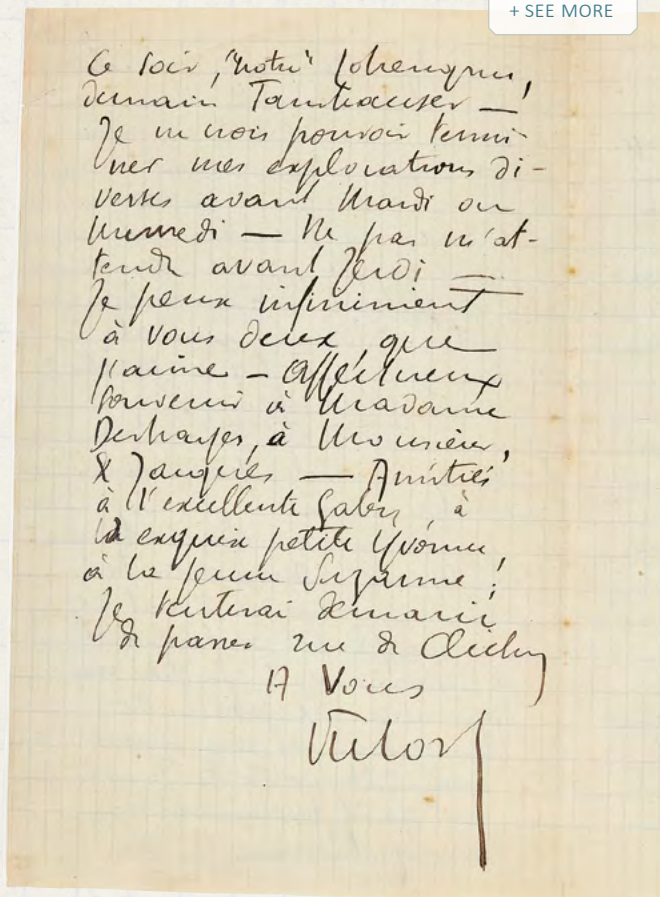 + SEE MORE
Ce soir, "notre" Lohengrin,
demain Tannhauser —
Je ne crois pouvoir termi-
ner mes explorations di-
verses avant Mardi ou
Mercredi — Ne pas m'at-
tendre avant Jeudi —
Je pense infiniment
à vous deux, que
j'aime — Affectueux
souvenir à Madame
à Monsieur,
& Jacques — Amitiés
à l'excellente Gaby, à
la exquise petite Yvonne,
à la jeune Suzanne ;
Je tenterai demain
de passer rue de Clichy
A Vous
Victor